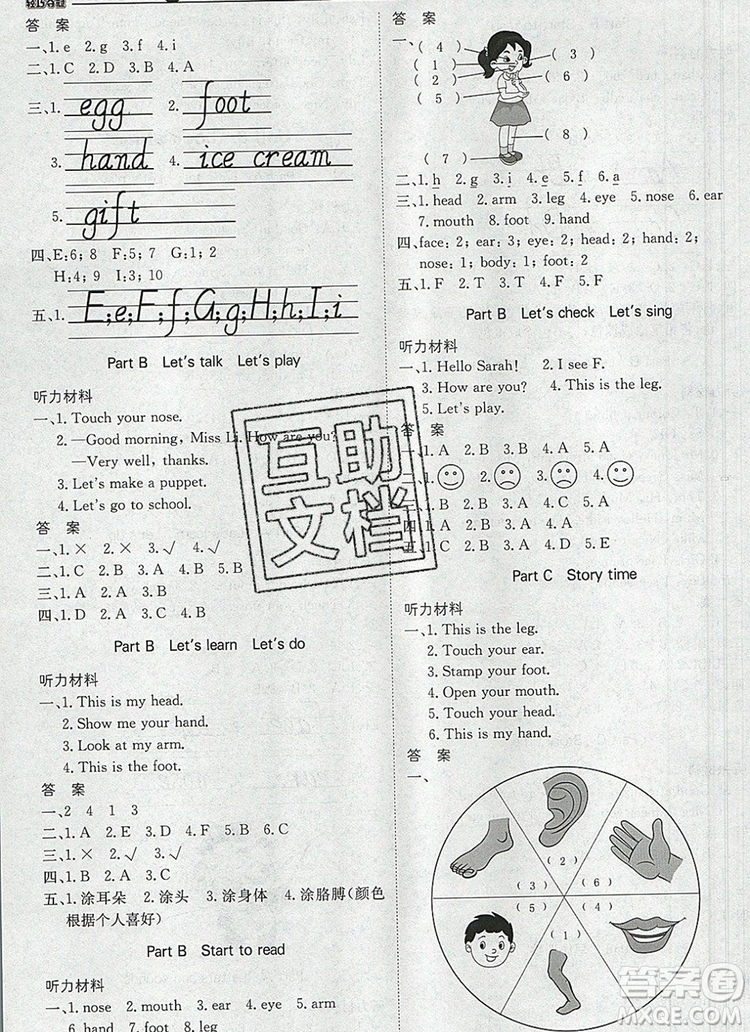 轻巧夺冠
答 案
一、1. e 2. g 3. f 4. i
二、1. C 2. D 3. B 4. A
三、1. egg 2. foot
3. hand 4. ice cream
5. gift
四、E:6; 8 F:5; 7 G:1; 2
H:4; 9 I:3; 10
五、1. E;eF;fG;gH;hI;i
Part B Let's talk Let's play
听力材料
一、1. Touch your nose.
2. —Good morning, Miss Li. How are you?
—Very well, thanks.
3. Let's make a puppet.
4. Let's go to school.
答 案
一、1. × 2. × 3. √ 4. √
二、1. B 2. A 3. B 4. A
三、1. B 2. A 3. B
四、1. D 2. A 3. C 4. B
Part B Let's learn Let's do
听力材料
一、1. This is my head.
2. Show me your hand.
3. Look at my arm.
4. This is the foot.
答 案
一、2 4 1 3
二、1. A 2. E 3. D 4. F 5. B 6. C
三、1. × 2. √ 3. √
四、1. B 2. B 3. A
五、1. 涂耳朵 2. 涂头 3. 涂身体 4. 涂胳膊(颜色
根据个人喜好)
Part B Start to read
听力材料
一、1. nose 2. mouth 3. eye 4. ear 5. arm
6. hand 7. foot 8. leg
答 案
一、
( 4 )
( 1 )
( 2 )
( 5 )
( 3 )
( 6 )
( 8 )
( 7 )
二、1. h 2. g 3. i 4. e 5. f 6. a
三、1. head 2. arm 3. leg 4. eye 5. nose 6. ear
7. mouth 8. foot 9. hand
四、face: 2; ear: 3; eye: 2; head: 2; hand: 2;
nose: 1; body: 1; foot: 2
五、1. F 2. T 3. T 4. F 5. F
Part B Let's check Let's sing
听力材料
一、1. Hello Sarah! 2. I see F.
3. How are you? 4. This is the leg.
5. Let's play.
答 案
一、1. A 2. B 3. B 4. A 5. A
二、1. 2. 3. 4.
三、1. B 2. B 3. A 4. A
四、1. B 2. B 3. A 4. A
五、1. C 2. B 3. A 4. D 5. E
Part C Story time
听力材料
一、1. This is the leg.
2. Touch your ear.
3. Stamp your foot.
4. Open your mouth.
5. Touch your head.
6. This is my hand.
答 案
一、
( 2 )
( 3 ) ( 6 )
( 5 ) ( 4 )
( 1 )
互助
文档
答案圈
MXQE.COM